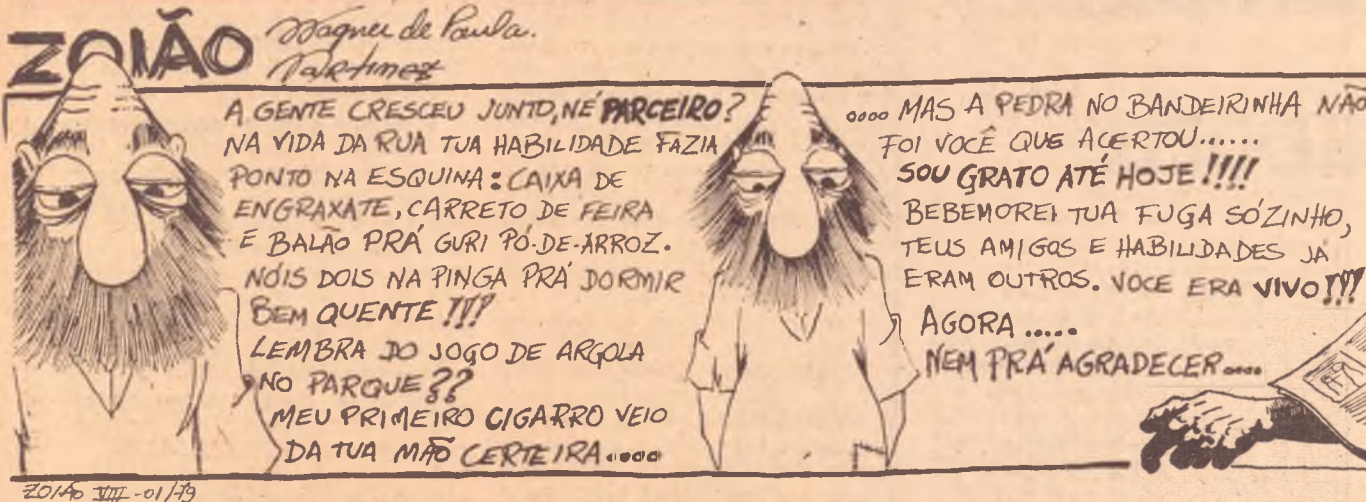 ZOIÃO
Wagner de Paula.
Martinez
A GENTE CRESCEU JUNTO, NÉ PARCEIRO?
NA VIDA DA RUA TUA HABILIDADE FAZIA
PONTO NA ESQUINA: CAIXA DE
ENGRAXATE, CARRETO DE FEIRA
E BALÃO PRÁ GURI PÓ-DE-ARROZ.
NÓIS DOIS NA PINGA PRÁ DORMIR
BEM QUENTE!!!
LEMBRA DO JOGO DE ARGOLA
NO PARQUE??
MEU PRIMEIRO CIGARRO VEIO
DA TUA MÃO CERTEIRA.....
.... MAS A PEDRA NO BANDEIRINHA NÃO
FOI VOCÊ QUE ACERTOU......
SOU GRATO ATÉ HOJE!!!!
BEBEMOREI TUA FUGA SÓZINHO,
TEUS AMIGOS E HABILIDADES JÁ
ERAM OUTROS. VOCE ERA VIVO!!!!
AGORA .....
NEM PRÁ AGRADECER....
ZOIÃO VIII-01/79